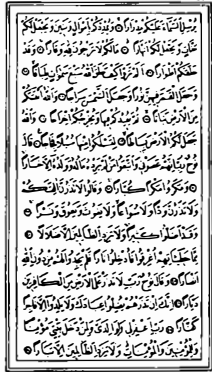 يُرْسِلِ السَّمَاءَ عَلَيْكُم مِّدْرَارًا ۝ وَيُمْدِدْكُم بِأَمْوَالٍ وَبَنِينَ وَيَجْعَل لَّكُمْ
جَنَّاتٍ وَيَجْعَل لَّكُمْ أَنْهَارًا ۝ مَّا لَكُمْ لَا تَرْجُونَ لِلَّهِ وَقَارًا ۝ وَقَدْ
خَلَقَكُمْ أَطْوَارًا ۝ أَلَمْ تَرَوْا كَيْفَ خَلَقَ اللَّهُ سَبْعَ سَمَاوَاتٍ طِبَاقًا ۝
وَجَعَلَ الْقَمَرَ فِيهِنَّ نُورًا وَجَعَلَ الشَّمْسَ سِرَاجًا ۝ وَاللَّهُ أَنبَتَكُم
مِّنَ الْأَرْضِ نَبَاتًا ۝ ثُمَّ يُعِيدُكُمْ فِيهَا وَيُخْرِجُكُمْ إِخْرَاجًا ۝ وَاللَّهُ
جَعَلَ لَكُمُ الْأَرْضَ بِسَاطًا ۝ لِّتَسْلُكُوا مِنْهَا سُبُلًا فِجَاجًا ۝ قَالَ
نُوحٌ رَّبِّ إِنَّهُمْ عَصَوْنِي وَاتَّبَعُوا مَن لَّمْ يَزِدْهُ مَالُهُ وَوَلَدُهُ إِلَّا خَسَارًا
۝ وَمَكَرُوا مَكْرًا كُبَّارًا ۝ وَقَالُوا لَا تَذَرُنَّ آلِهَتَكُمْ
وَلَا تَذَرُنَّ وَدًّا وَلَا سُوَاعًا وَلَا يَغُوثَ وَيَعُوقَ وَنَسْرًا ۝
وَقَدْ أَضَلُّوا كَثِيرًا وَلَا تَزِدِ الظَّالِمِينَ إِلَّا ضَلَالًا ۝
مِّمَّا خَطِيئَاتِهِمْ أُغْرِقُوا فَأُدْخِلُوا نَارًا فَلَمْ يَجِدُوا لَهُم مِّن دُونِ اللَّهِ
أَنصَارًا ۝ وَقَالَ نُوحٌ رَّبِّ لَا تَذَرْ عَلَى الْأَرْضِ مِنَ الْكَافِرِينَ
دَيَّارًا ۝ إِنَّكَ إِن تَذَرْهُمْ يُضِلُّوا عِبَادَكَ وَلَا يَلِدُوا إِلَّا فَاجِرًا
كَفَّارًا ۝ رَّبِّ اغْفِرْ لِي وَلِوَالِدَيَّ وَلِمَن دَخَلَ بَيْتِيَ مُؤْمِنًا
وَلِلْمُؤْمِنِينَ وَالْمُؤْمِنَاتِ وَلَا تَزِدِ الظَّالِمِينَ إِلَّا تَبَارًا ۝